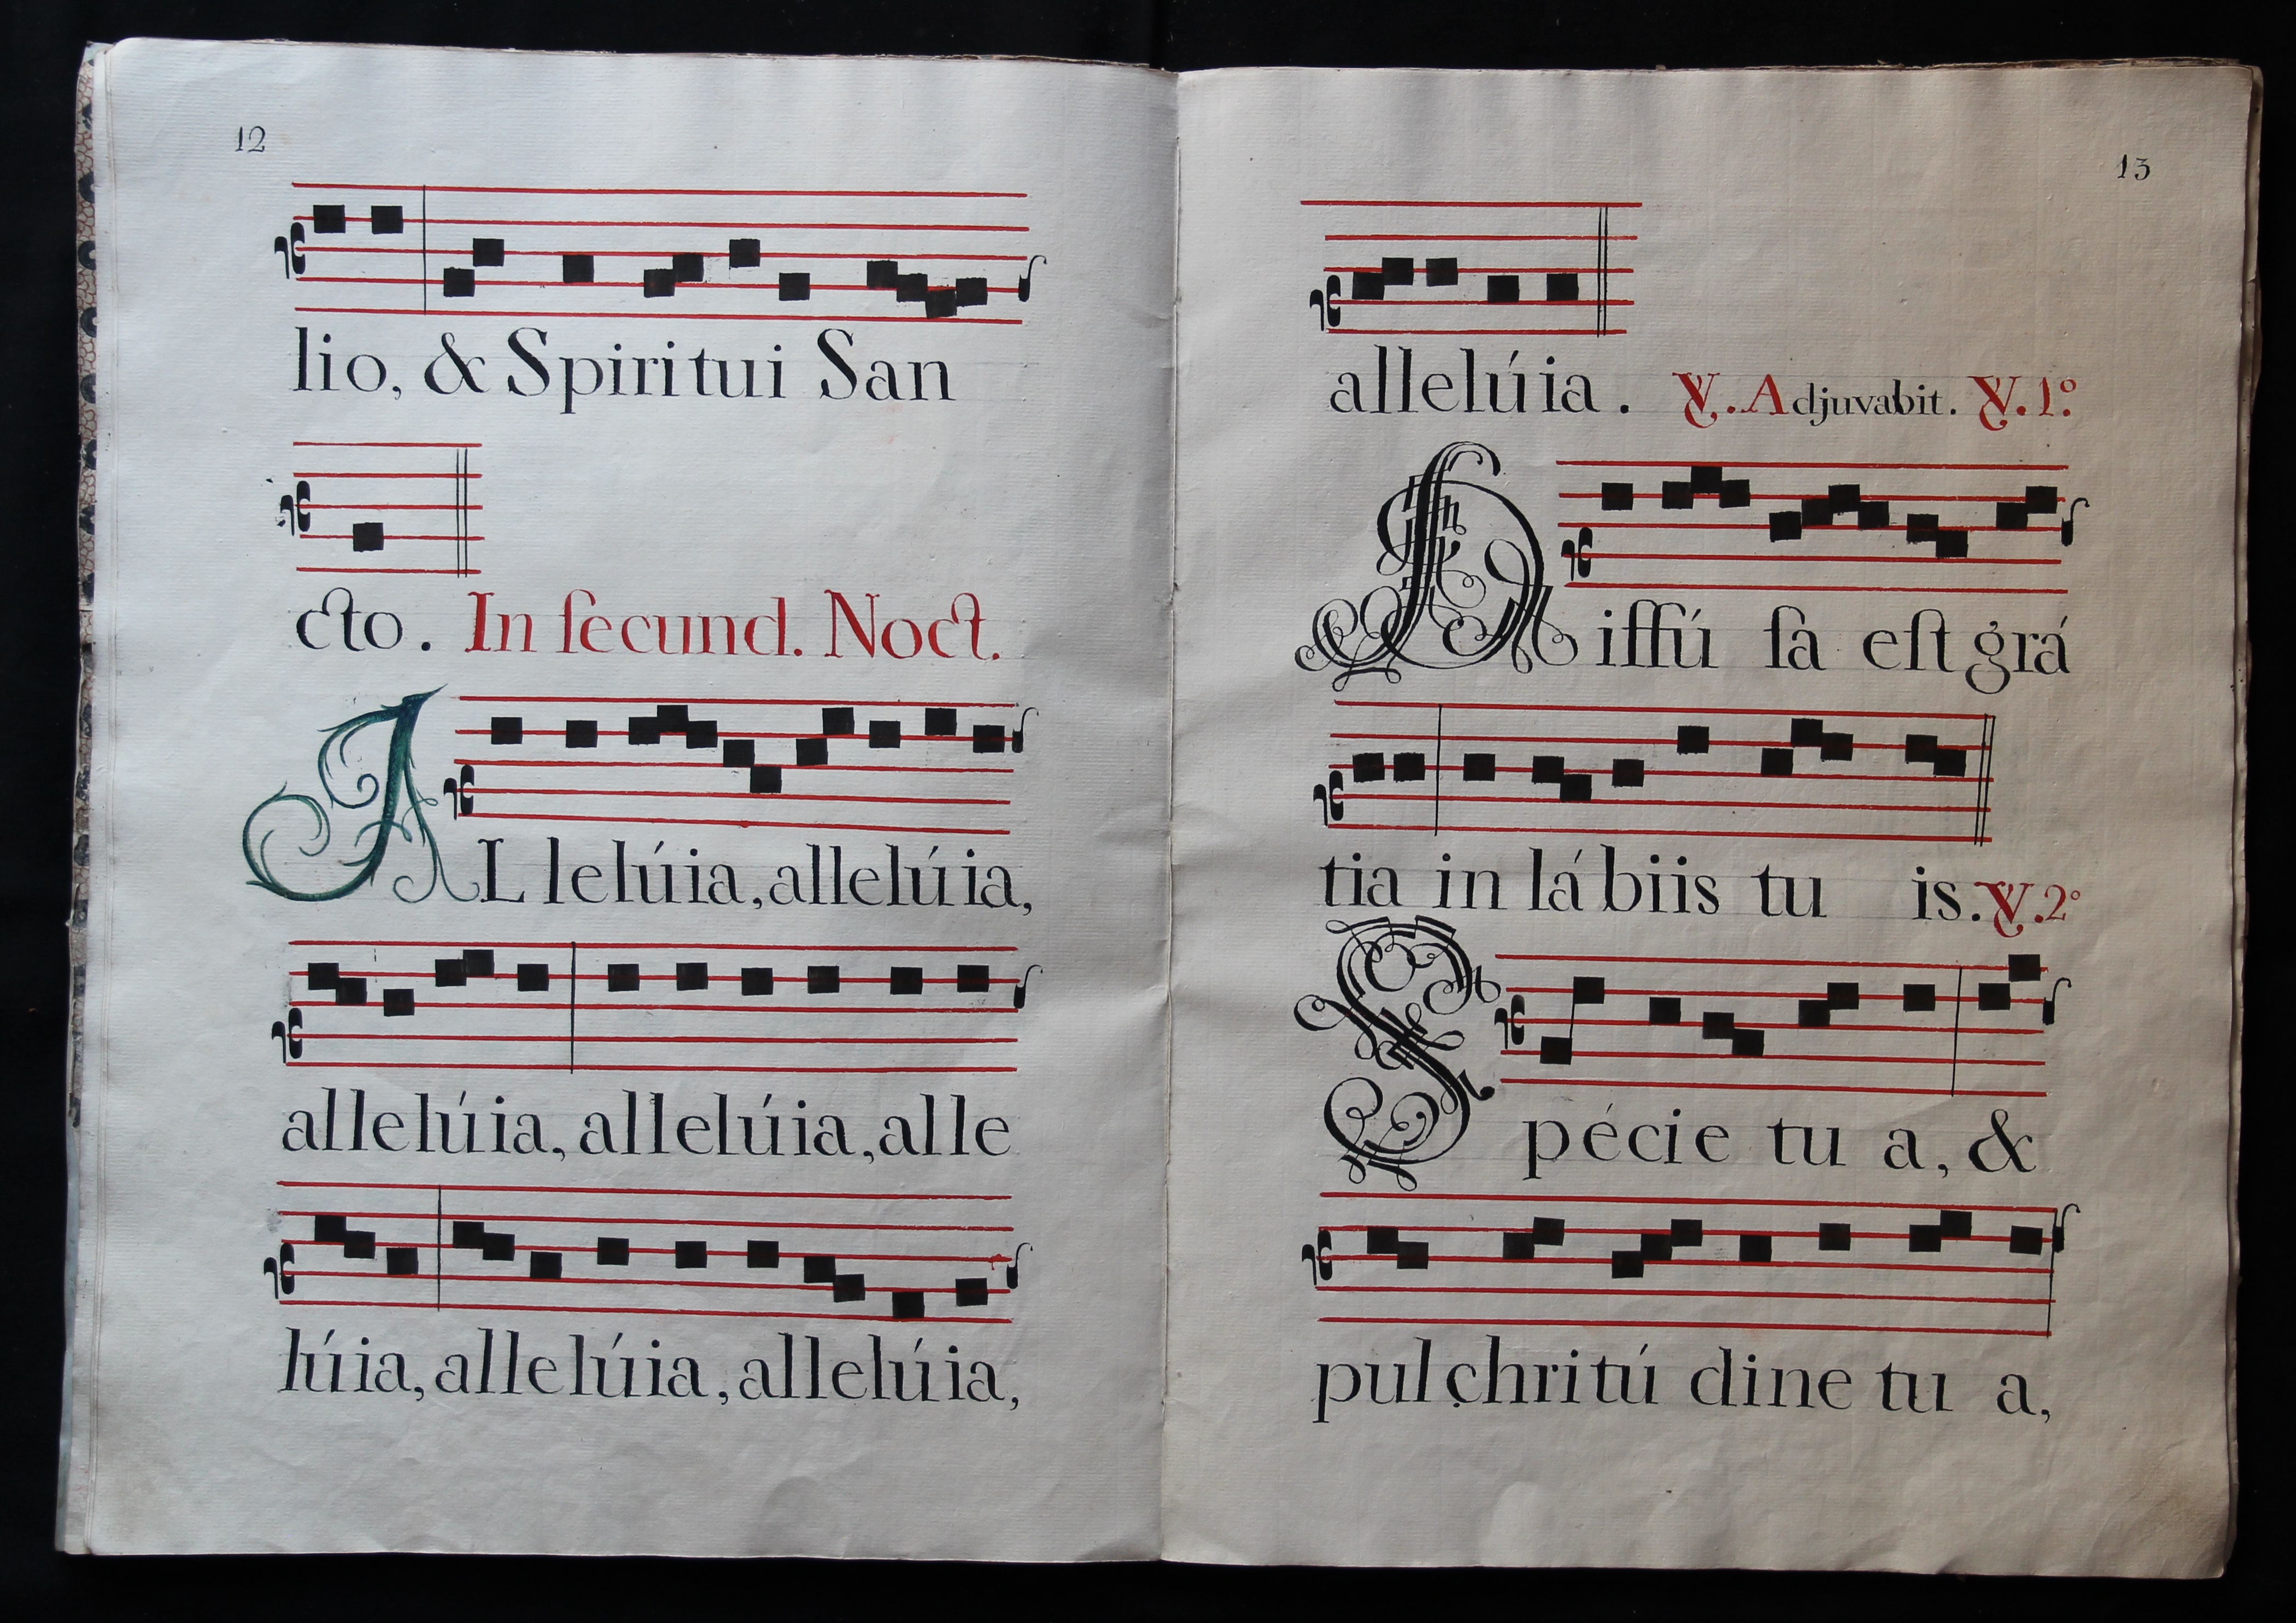 12
lio, & Spiritui San
cto. In ſecund. Noct.
AL lelúia, allelúia,
allelúia, allelúia, alle
lúia, allelúia, allelúia,
13
allelúia. ℣. Adjuvabit. ℣. 1º
Diffú ſa eſt grá
tia in lábiis tu is. ℣. 2º
Spécie tu a, &
pulchritú dine tu a,